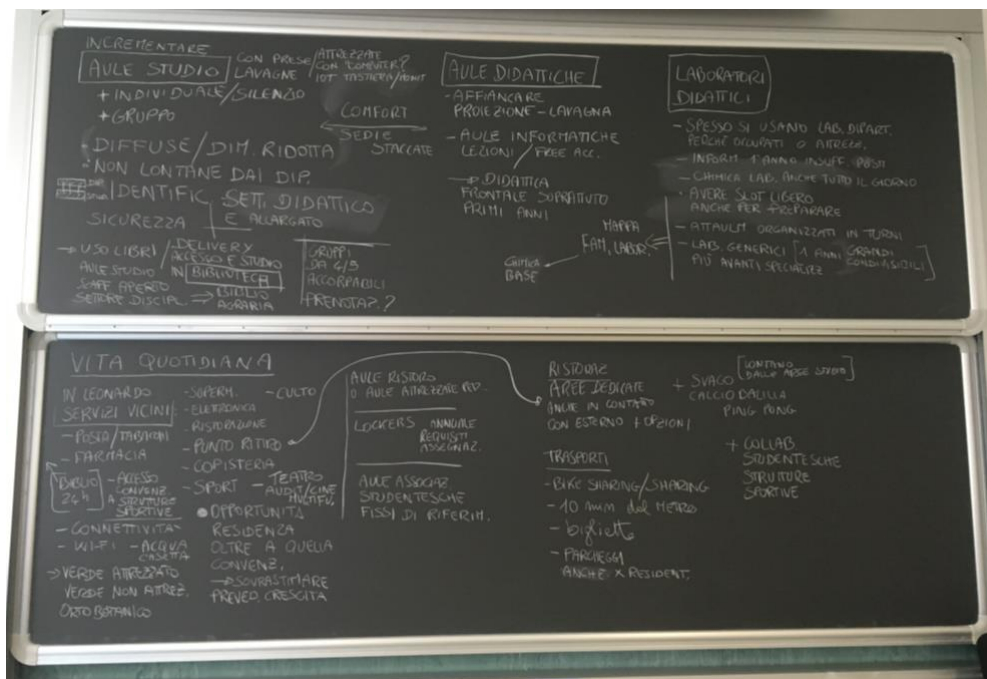 INCREMENTARE
AULE STUDIO
CON PRESE / ATTREZZATE
LAVAGNE / CON COMPUTER?
+ INDIVIDUALE/SILENZIO
+ GRUPPO
COMFORT
SEDIE
STACCATE
- DIFFUSE/DIM. RIDOTTA
- NON LONTANE DAI DIP.
IDENTIFIC. SETT. DIDATTICO
E ALLARGATO
SICUREZZA
→ USO LIBRI / DELIVERY
ACCESSO E STUDIO
AULE STUDIO IN BIBLIOTECA
SCAFF APERTO
SETTORE DISCIPL ⇒ BIBLIO
AGRARIA
GRUPPI
DA 4/5
ACCORPABILI
PRENOTAZ.?
AULE DIDATTICHE
- AFFIANCARE
PROIEZIONE - LAVAGNA
- AULE INFORMATICHE
LEZIONI / FREE ACC.
→ DIDATTICA
FRONTALE SOPRATTUTO
PRIMI ANNI
MAPPA
FAM. LABOR.
CHIMICA
BASE
LABORATORI
DIDATTICI
- SPESSO SI USANO LAB. DIPART.
PERCHÉ OCCUPATI O ATTREZZ.
- INFORM 1 ANNO INSUFF. POSTI
- CHIMICA LAB. ANCHE TUTTO IL GIORNO
- AVERE SLOT LIBERO
ANCHE PER PREPARARE
- ATTUALM ORGANIZZATI IN TURNI
- LAB. GENERICI [1 ANNI GRANDI
CONDIVISIBILI]
PIÙ AVANTI SPECIALIZZ
VITA QUOTIDIANA
IN LEONARDO
SERVIZI VICINI:
- POSTA/TABACCHI
- FARMACIA
BIBLIO
24h
- ACCESSO
CONVENZ
A STRUTTURE
SPORTIVE
- CONNETTIVITA'
- WI-FI - ACQUA
CASETTA
→ VERDE ATTREZZATO
VERDE NON ATTREZ.
ORTO BOTANICO
- SUPERM. - CULTO
- ELETTRONICA
- RISTORAZIONE
- PUNTO RITIRO
- COPISTERIA
- SPORT - TEATRO
AUDIT/CINE
MULTIFU
• OPPORTUNITÀ
RESIDENZA
OLTRE A QUELLA
CONVENZ.
→ SOVRASTIMARE
PREVED. CRESCITA
AULE RISTORO
O AULE ATTREZZATE
LOCKERS ANNUALE
REQUISITI
ASSEGNAZ.
AULE ASSOCIAZ.
STUDENTESCHE
FISSI DI RIFERIM.
RISTORAZ
AREE DEDICATE
ANCHE IN CONTATTO
CON ESTERNO + OPZIONI
TRASPORTI
- BIKE SHARING/SHARING
- 10 min dal METRO
- biglietto
- PARCHEGGI
ANCHE X RESIDENT.
[LONTANO
DALLE AREE STUDIO]
+ SVAGO
CALCIO BALILLA
PING PONG
+ COLLAB
STUDENTESCHE
STRUTTURE
SPORTIVE